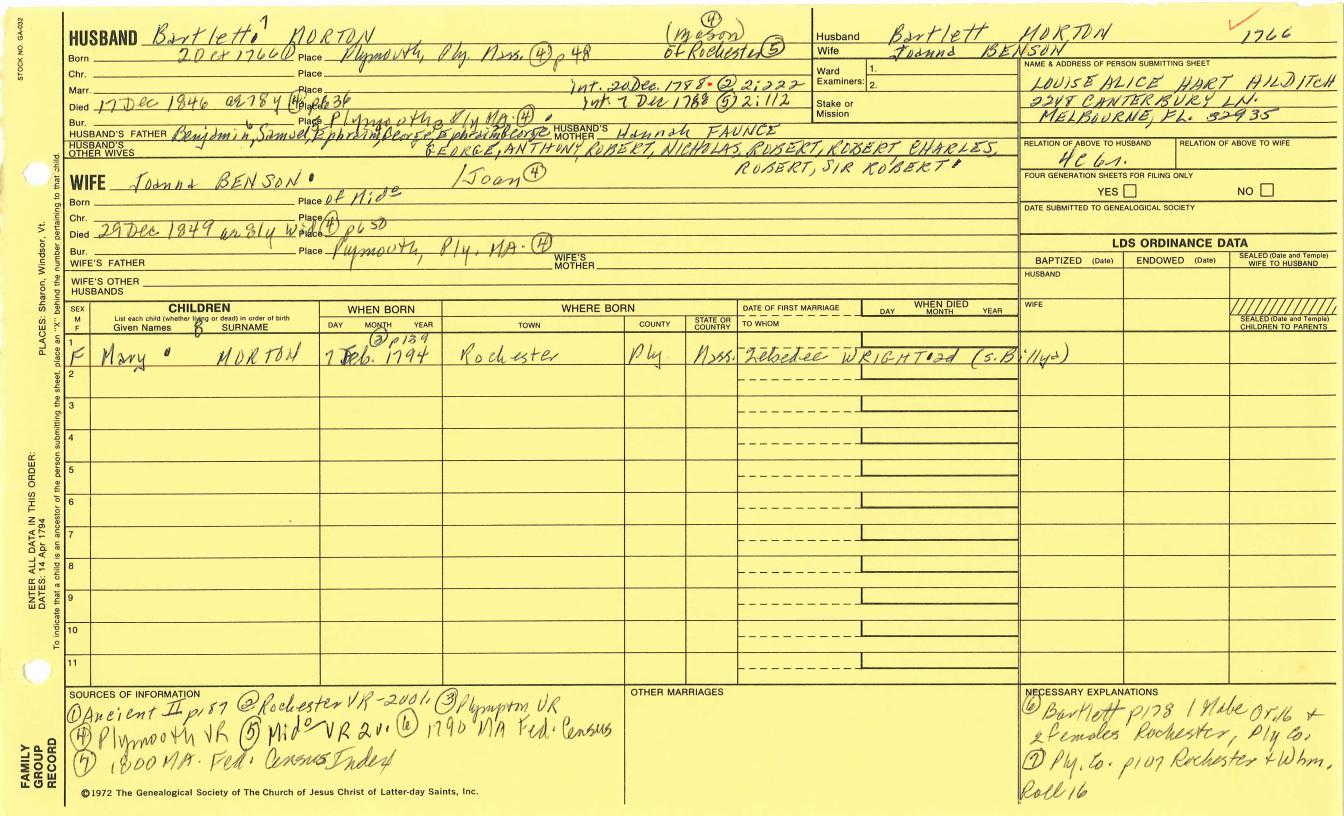 STOCK NO. GA-032
HUSBAND Bartlett 7 MORTON
Born 2 Oct 1766 ① Place Plymouth, Ply. Mass. ④ p 48
④ (Mason) of Rochester ⑤
Chr. Place
Marr. Place Int. 20 Dec. 1788 ② 2:222
Died 17 Dec 1846 ae 78y ④ p 636 Place Int. 7 Dec 1788 ⑤ 2:112
Bur. Place Plymouth, Ply MA. ④
HUSBAND'S FATHER Benjamin, Samuel, Ephraim, George, Ephraim, George HUSBAND'S MOTHER Hannah FAUNCE
HUSBAND'S OTHER WIVES GEORGE, ANTHONY, ROBERT, NICHOLAS, ROBERT, ROBERT CHARLES,
ROBERT, SIR ROBERT
WIFE Joanna BENSON /Joan ④
Born Place of Mido
Chr. Place
Died 29 Dec 1849 ae 81y wid ④ p 650 Place
Bur. Place Plymouth, Ply. MA. ④
WIFE'S FATHER WIFE'S MOTHER
WIFE'S OTHER HUSBANDS
Husband Bartlett MORTON 1766
Wife Joanna BENSON
Ward Examiners: 1.
2.
Stake or Mission
NAME & ADDRESS OF PERSON SUBMITTING SHEET
LOUISE ALICE HART HILDITCH
2248 CANTERBURY LN.
MELBOURNE, FL. 32935
RELATION OF ABOVE TO HUSBAND RELATION OF ABOVE TO WIFE
4c 6r.
FOUR GENERATION SHEETS FOR FILING ONLY
YES NO
DATE SUBMITTED TO GENEALOGICAL SOCIETY
LDS ORDINANCE DATA
BAPTIZED (Date) ENDOWED (Date) SEALED (Date and Temple) WIFE TO HUSBAND
HUSBAND
WIFE
SEALED (Date and Temple) CHILDREN TO PARENTS
SEX M F
CHILDREN
List each child (whether living or dead) in order of birth
Given Names 8 SURNAME
WHEN BORN
DAY MONTH YEAR
WHERE BORN
TOWN COUNTY STATE OR COUNTRY
DATE OF FIRST MARRIAGE
TO WHOM
WHEN DIED
DAY MONTH YEAR
③ p139
1 F Mary MORTON 7 Feb. 1794 Rochester Ply. Mass. Zebedee WRIGHT 2d (s. Billya)
2
3
4
5
6
7
8
9
10
11
SOURCES OF INFORMATION
① Ancient II p187 ② Rochester VR-2vols. ③ Plympton VR
④ Plymouth VR ⑤ Mido VR 2v. ⑥ 1790 MA Fed. Census
⑦ 1800 MA. Fed. Census Index
OTHER MARRIAGES
NECESSARY EXPLANATIONS
⑥ Bartlett p178 1 Male Or 16 +
2 females Rochester, Ply Co.
⑦ Ply. Co. p107 Rochester + Whm.
Roll 16
©1972 The Genealogical Society of The Church of Jesus Christ of Latter-day Saints, Inc.
FAMILY GROUP RECORD
ENTER ALL DATA IN THIS ORDER:
DATES: 14 Apr 1794 PLACES: Sharon, Windsor, Vt.
To indicate that a child is an ancestor of the person submitting the sheet, place an "X" behind the number pertaining to that child.